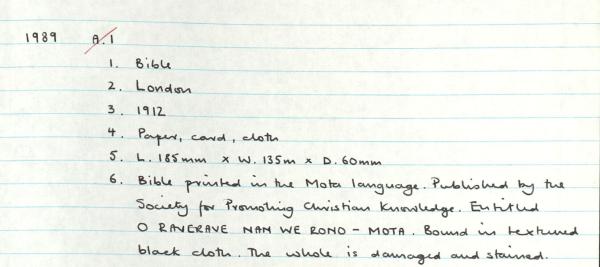 1989 A.1
1. Bible
2. London
3. 1912
4. Paper, card, cloth
5. L. 185mm x W. 135m x D. 60mm
6. Bible printed in the Mota language. Published by the
Society for Promoting Christian Knowledge. Entitled
O RAVERAVE NAN WE RONO - MOTA. Bound in textured
black cloth. The whole is damaged and stained.